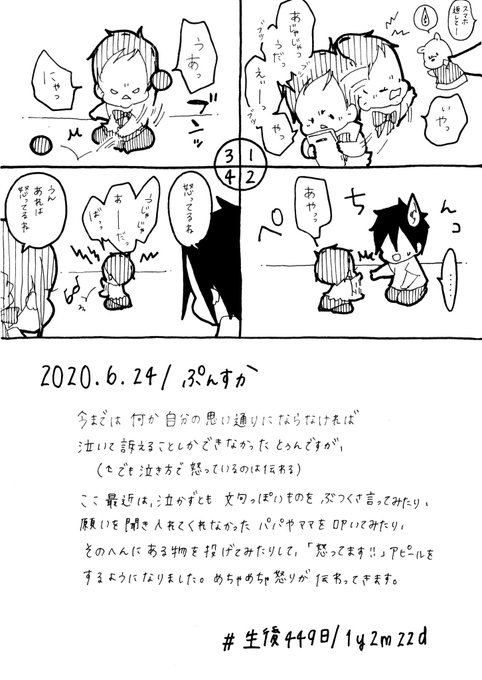 スマホ
返してー
いやっ
あじゃじゃっ
うだっ
えぃーっ
ブッ
ブッ
1
2
3
4
あやっっ
ぺ
ち
んコ
……
うあっ
にゃっ
ブンッ
怒ってるね
うじゃじゃ
あーだっ
ばっ
うん
あれは
怒ってるね
2020.6.24/ぷんすか
今までは何か自分の思い通りにならなければ
泣いて訴えることしかできなかったとぅんですが、
(でも泣き方で怒っているのは伝わる)
ここ最近は、泣かずとも文句っぽいものをぶつくさ言ってみたり、
願いを聞き入れてくれなかったパパやママを叩いてみたり、
そのへんにある物を投げてみたりして、「怒ってます!!」アピールを
するようになりました。めちゃめちゃ怒りが伝わってきます。
#生後449日/1y2m22d